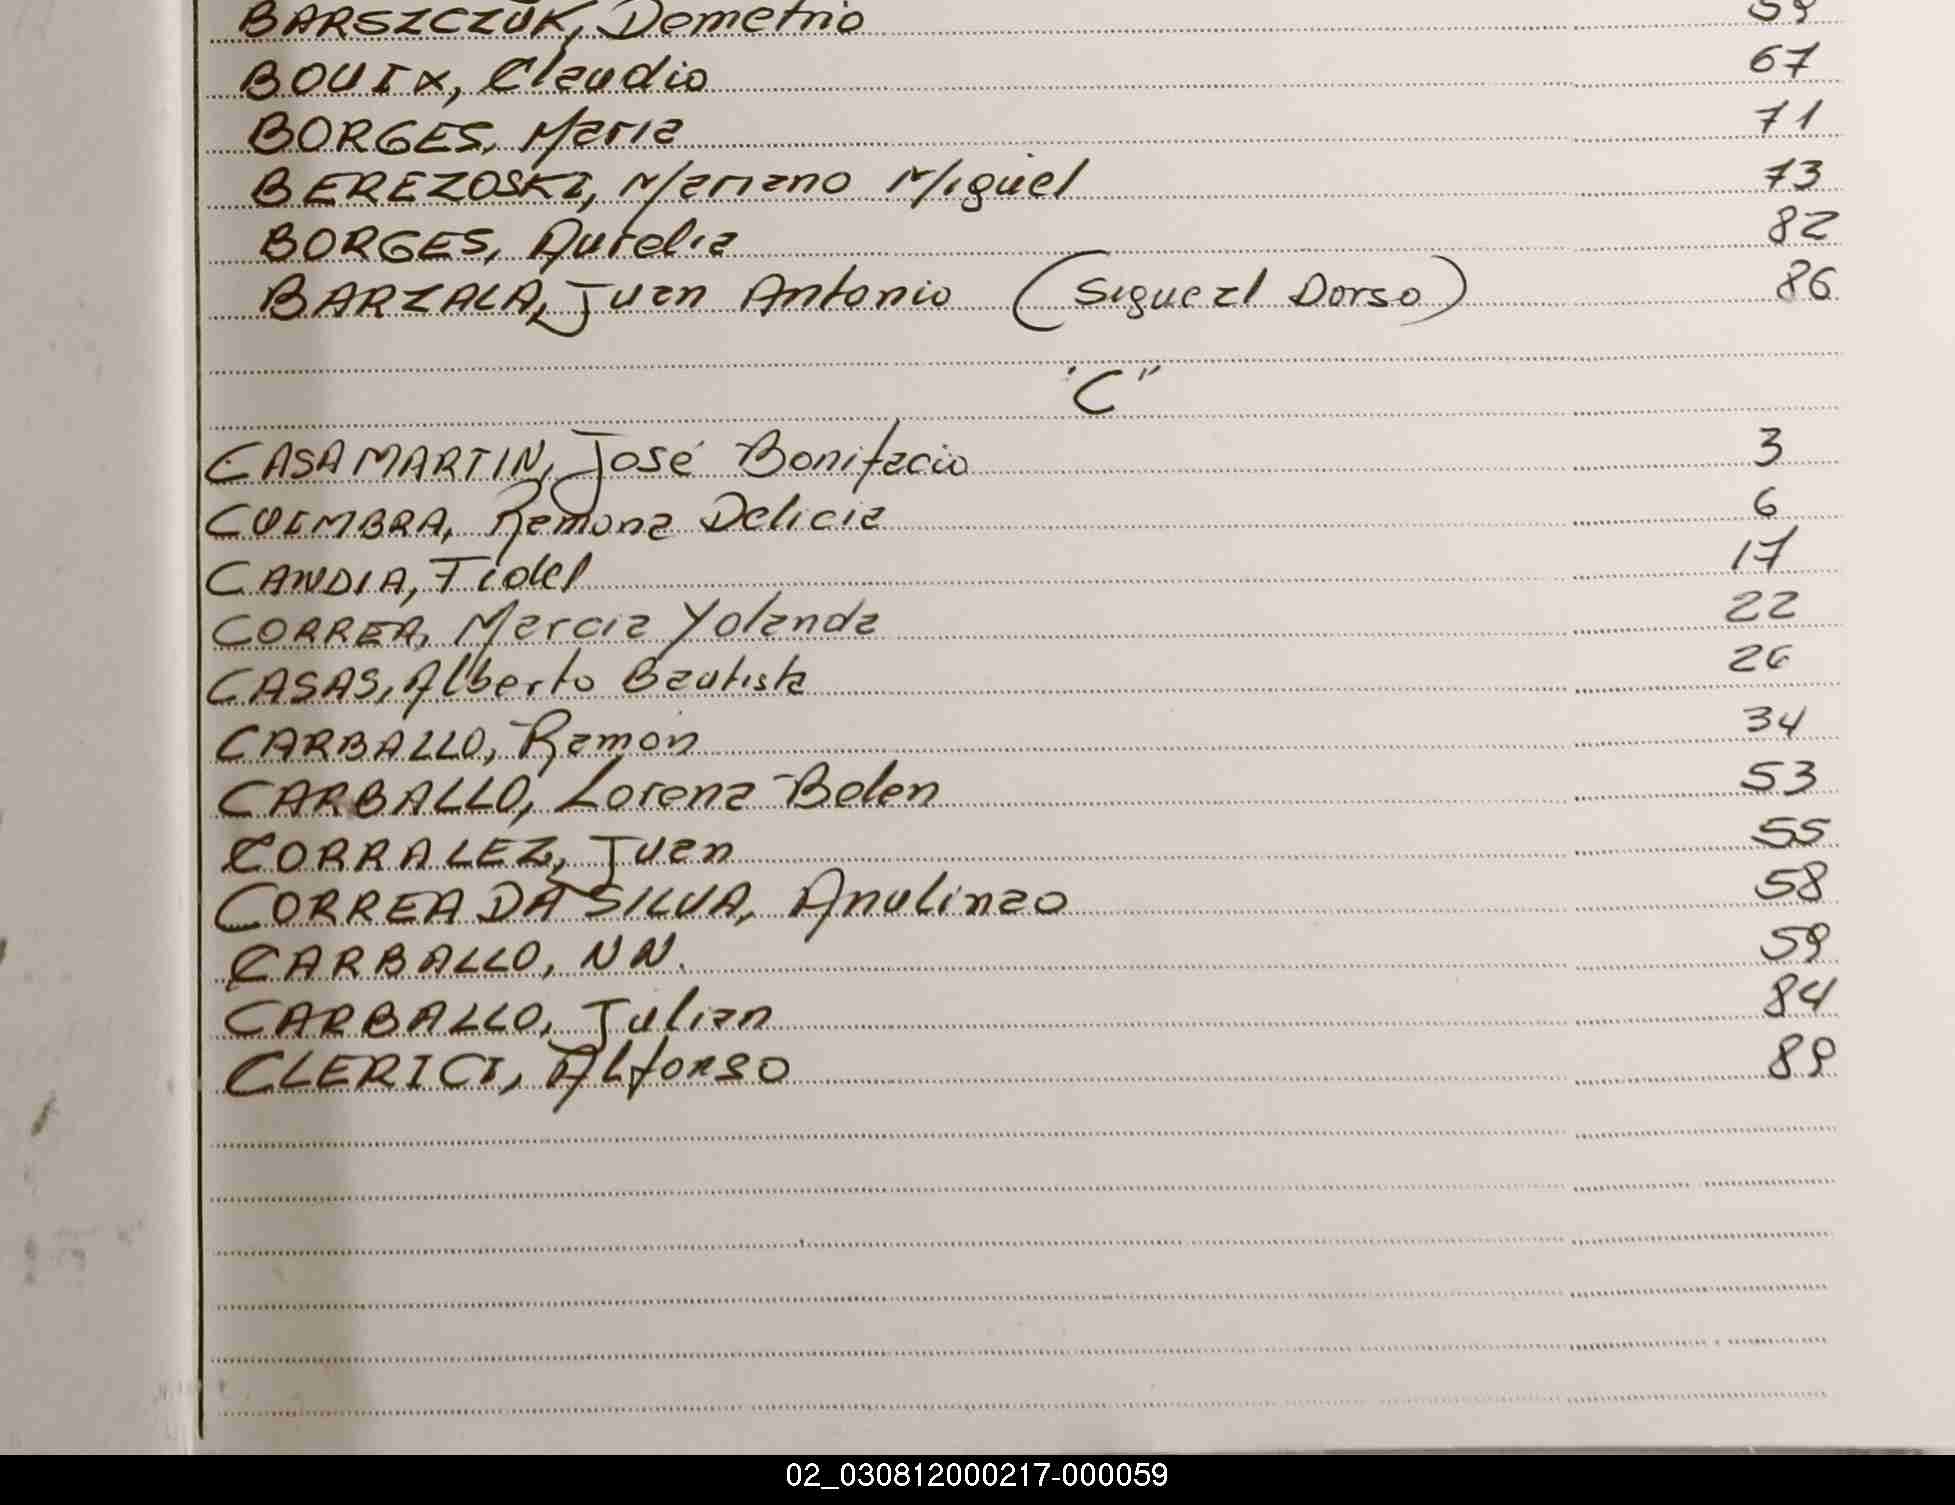 BARSZCZUK, Demetrio 59
BOUIX, Claudio 67
BORGES, Maria 71
BEREZOSKI, Mariano Miguel 73
BORGES, Aurelia 82
BARZALA, Juan Antonio (Sigue al Dorso) 86
"C"
CASAMARTIN, José Bonifacio 3
CUIMBRA, Ramona Delicia 6
CANDIA, Fidel 17
CORREA, Marcia Yolanda 22
CASAS, Alberto Bautista 26
CARBALLO, Ramón 34
CARBALLO, Lorena Belen 53
CORRALEZ, Juan 55
CORREA DA SILVA, Anulinao 58
CARBALLO, NN. 59
CARBALLO, Julian 84
CLERICI, Alfonso 89
02_030812000217-000059